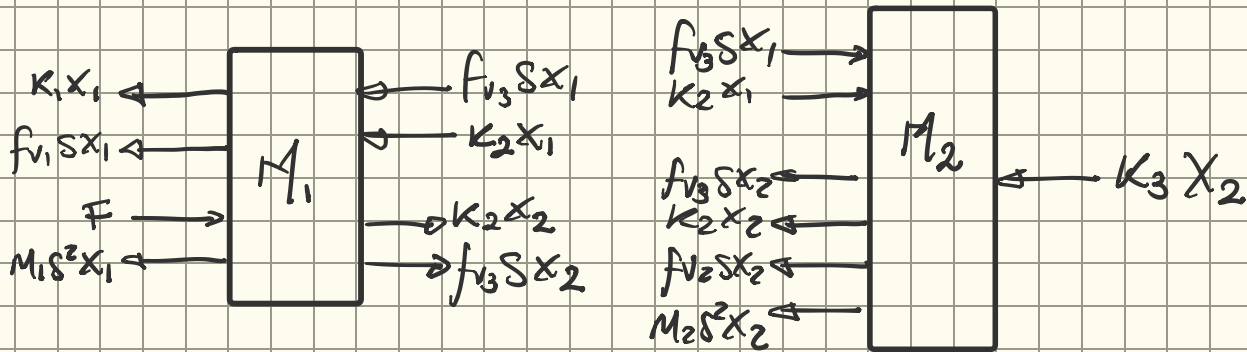 K₁X₁
fᵥ₁SX₁
F
M₁S²X₁
M₁
fᵥ₃SX₁
K₂X₁
K₂X₂
fᵥ₃SX₂
fᵥ₃SX₁
K₂X₁
fᵥ₃SX₂
K₂X₂
fᵥ₂SX₂
M₂S²X₂
M₂
K₃X₂